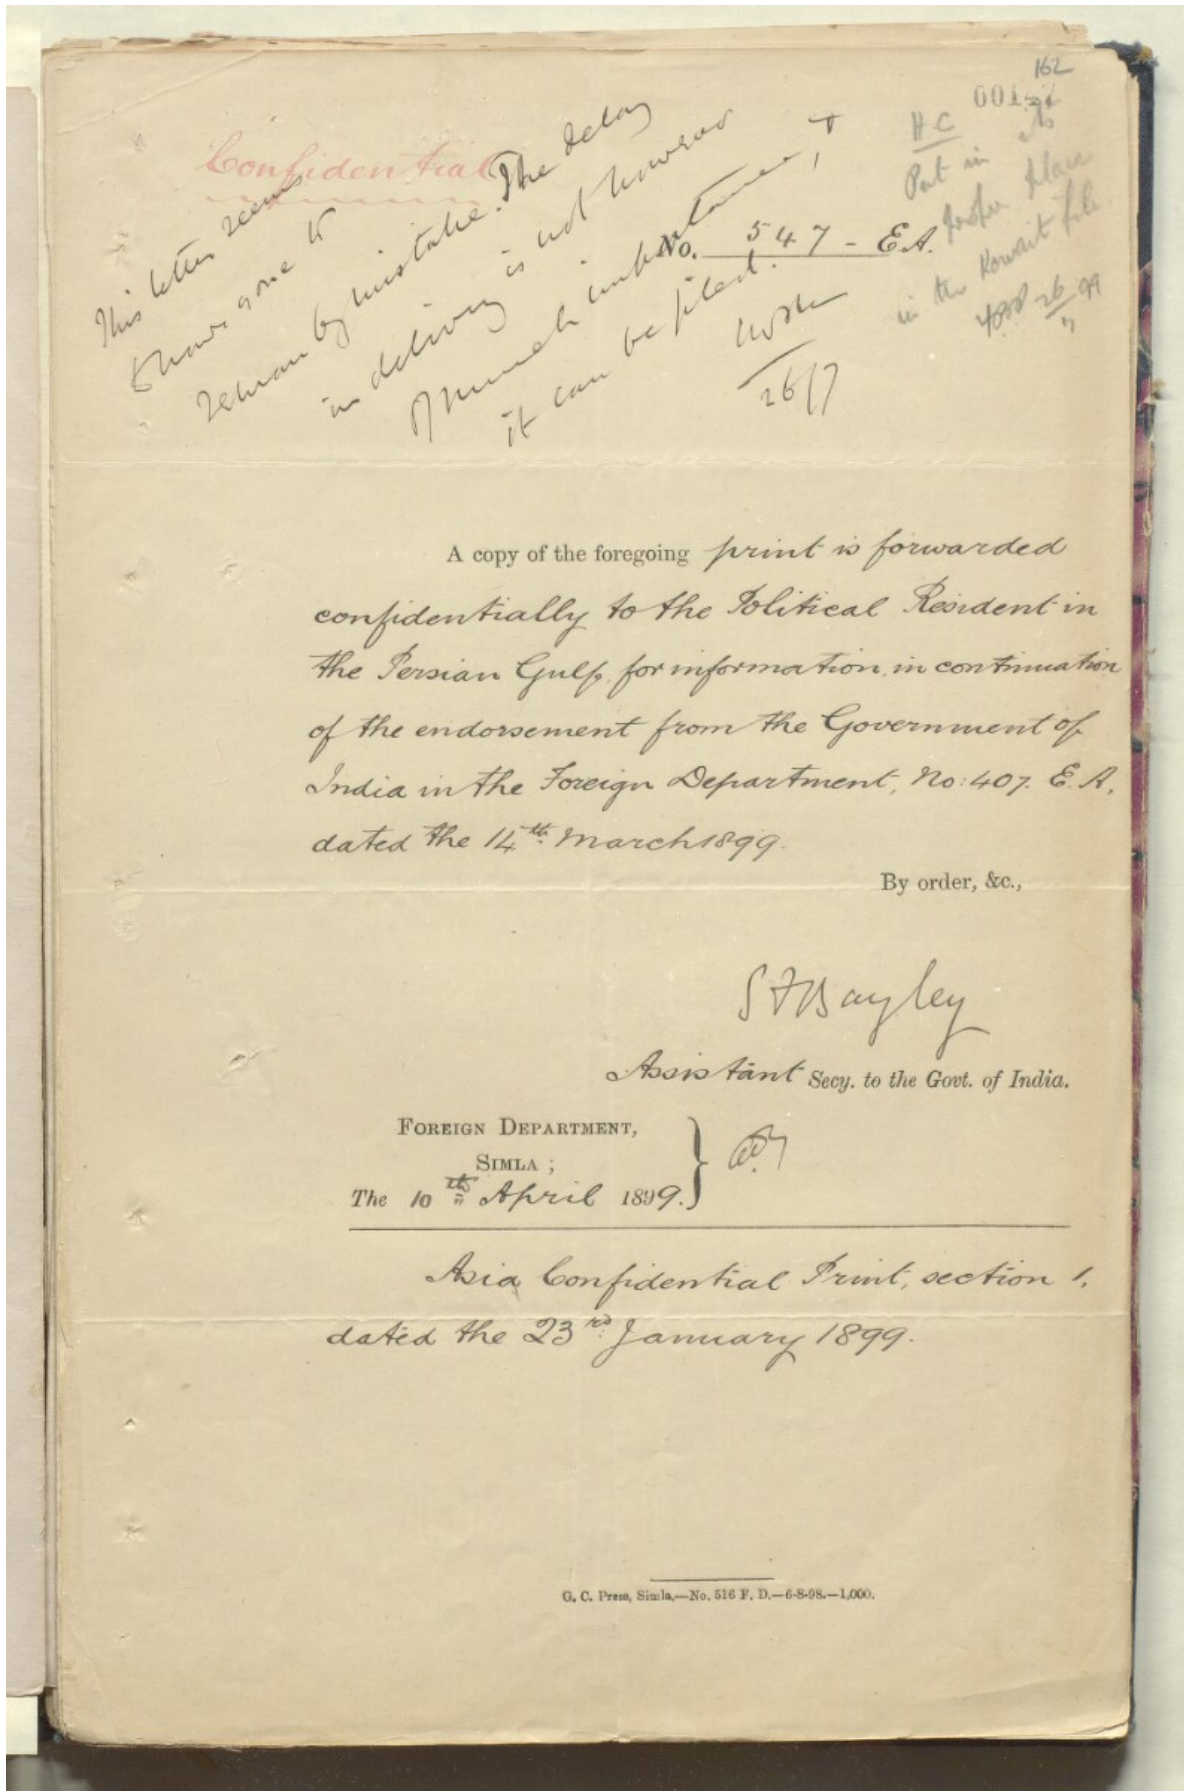 162
Confidential
This letter seems
to have gone to
Tehran by mistake. The delay
in delivery is not however
of much importance, &
it can be filed.
26/7
H.C
Put in its
proper place
in the Kowait file.
26
99
No. 547 - E.A.
A copy of the foregoing print is forwarded
confidentially to the Political Resident in
the Persian Gulf, for information, in continuation
of the endorsement from the Government of
India in the Foreign Department, No: 407. E. A,
dated the 14th. March 1899.
By order, &c.,
S F Bayley
Assistant Secy. to the Govt. of India.
FOREIGN DEPARTMENT,
SIMLA ;
The 10th April 1899.
Asia Confidential Print, section 1.
dated the 23rd. January 1899.
G. C. Press, Simla,—No. 516 F. D.—6-8-98.—1,000.